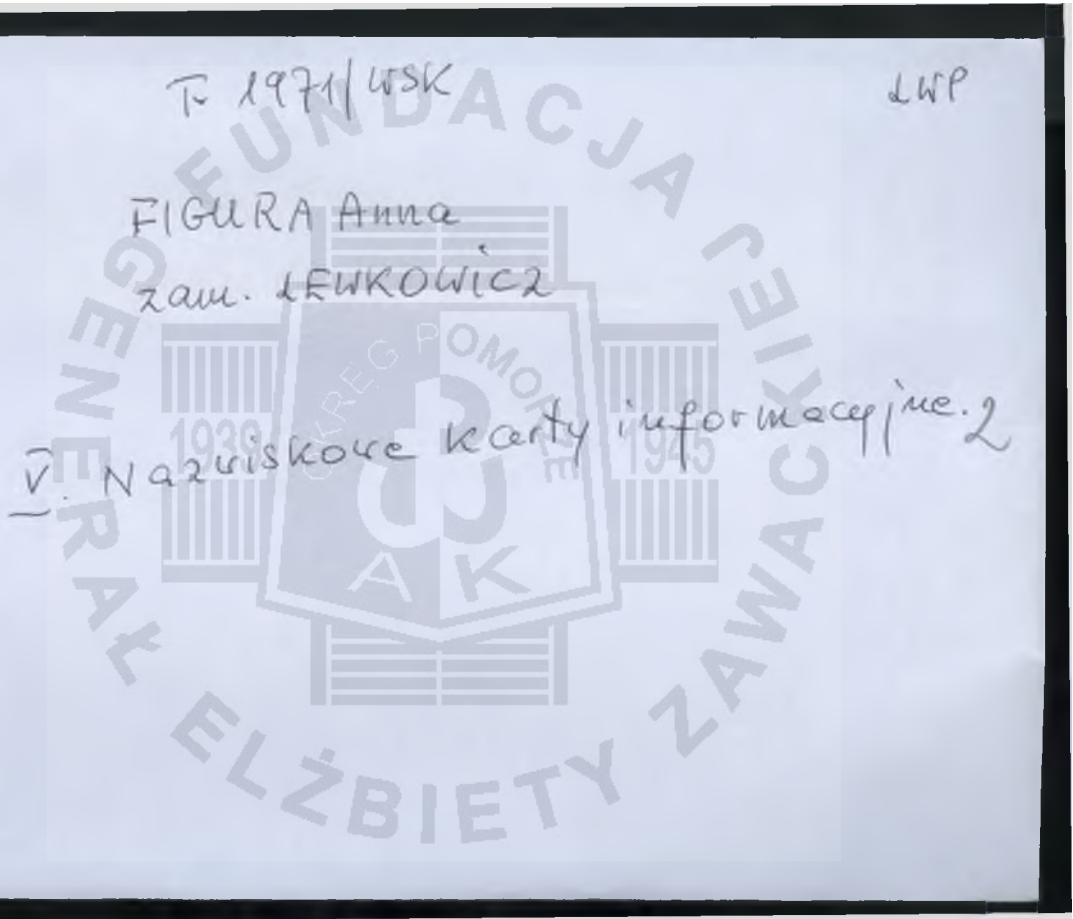 T. 1971/WSK
LWP
FIGURA Anna
zam. LEWKOWICZ
V. Nazwiskowe karty informacyjne. 2
FUNDACJA GENERAŁ ELŻBIETY ZAWACKIEJ
OKRĘG POMORZE
1939
1945
AK